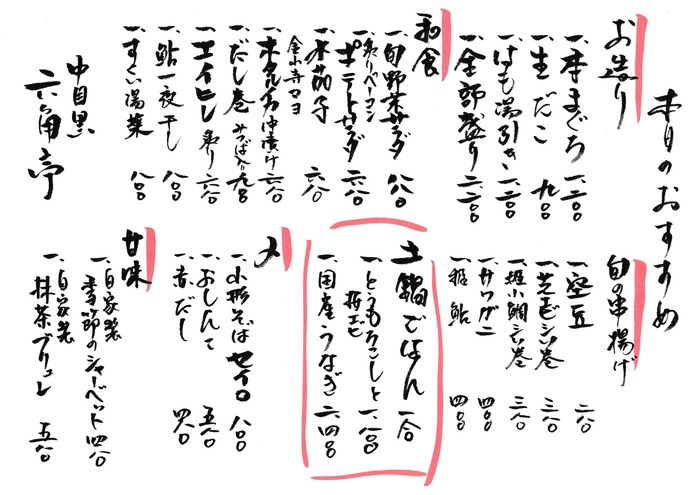 本日のおすすめ
お造り
一、本まぐろ 一、二〇〇
一、生だこ 九〇〇
一、はも湯引き 一、二〇〇
一、全部盛り 二、二〇〇
和食
一、旬野菜サラダ 八八〇
一、炙りベーコン
ポテトサラダ 六八〇
一、水茄子
金山寺マヨ 六八〇
一、ホタルイカ沖漬け 六八〇
一、だし巻 みつば入り 九八〇
一、エイヒレ炙り 六八〇
一、鮎一夜干し 八〇〇
一、すくい湯葉 八〇〇
中目黒
六角亭
旬の串揚げ
一、空豆 二八〇
一、芝エビシソ巻 三八〇
一、姫小鯛シソ巻 三八〇
一、サワガニ 四〇〇
一、稚鮎 四〇〇
土鍋ごはん 一合
一、とうもろこしと
桜エビ 一、八〇〇
一、国産うなぎ 二、四〇〇
〆
一、山形そば セイロ 八〇〇
一、おしんこ 五八〇
一、赤だし 四八〇
甘味
一、自家製
季節のシャーベット 四八〇
一、自家製
抹茶ブリュレ 五八〇